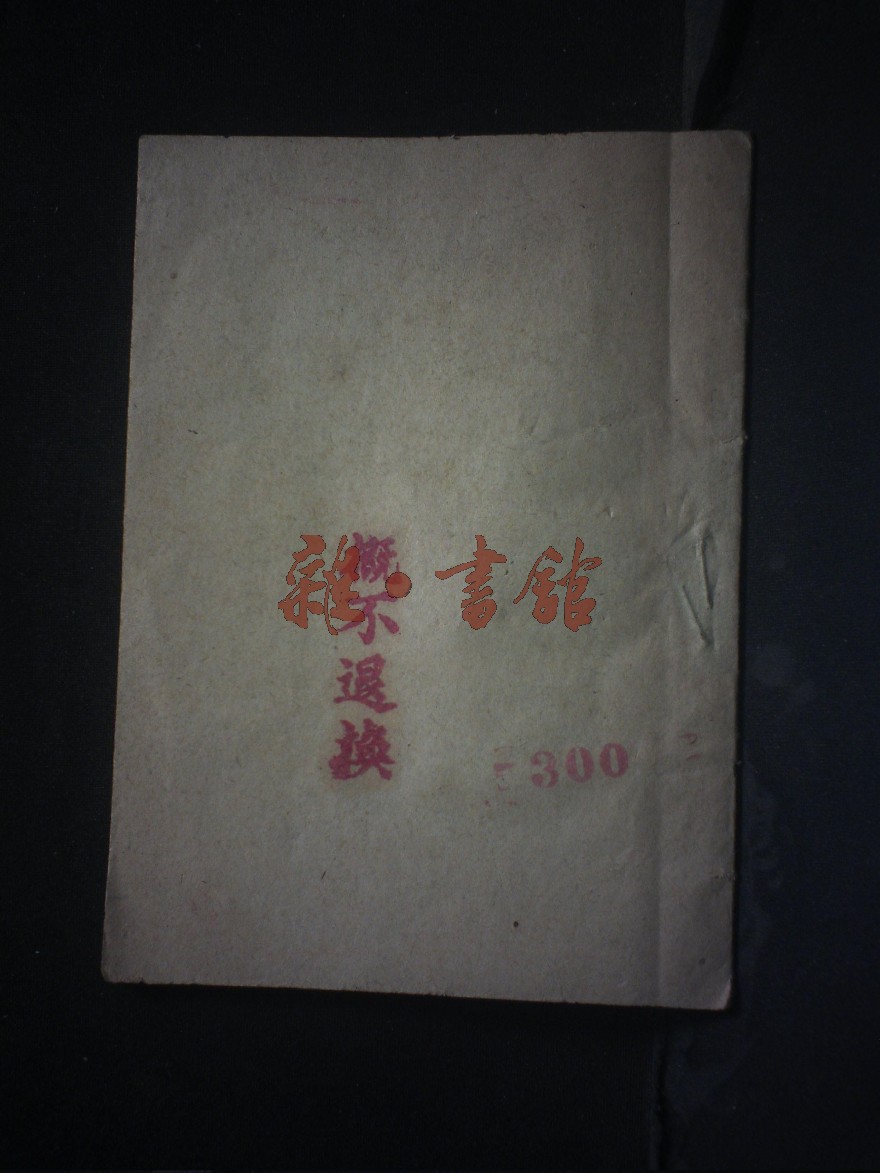 雜·書館
概不退換
300